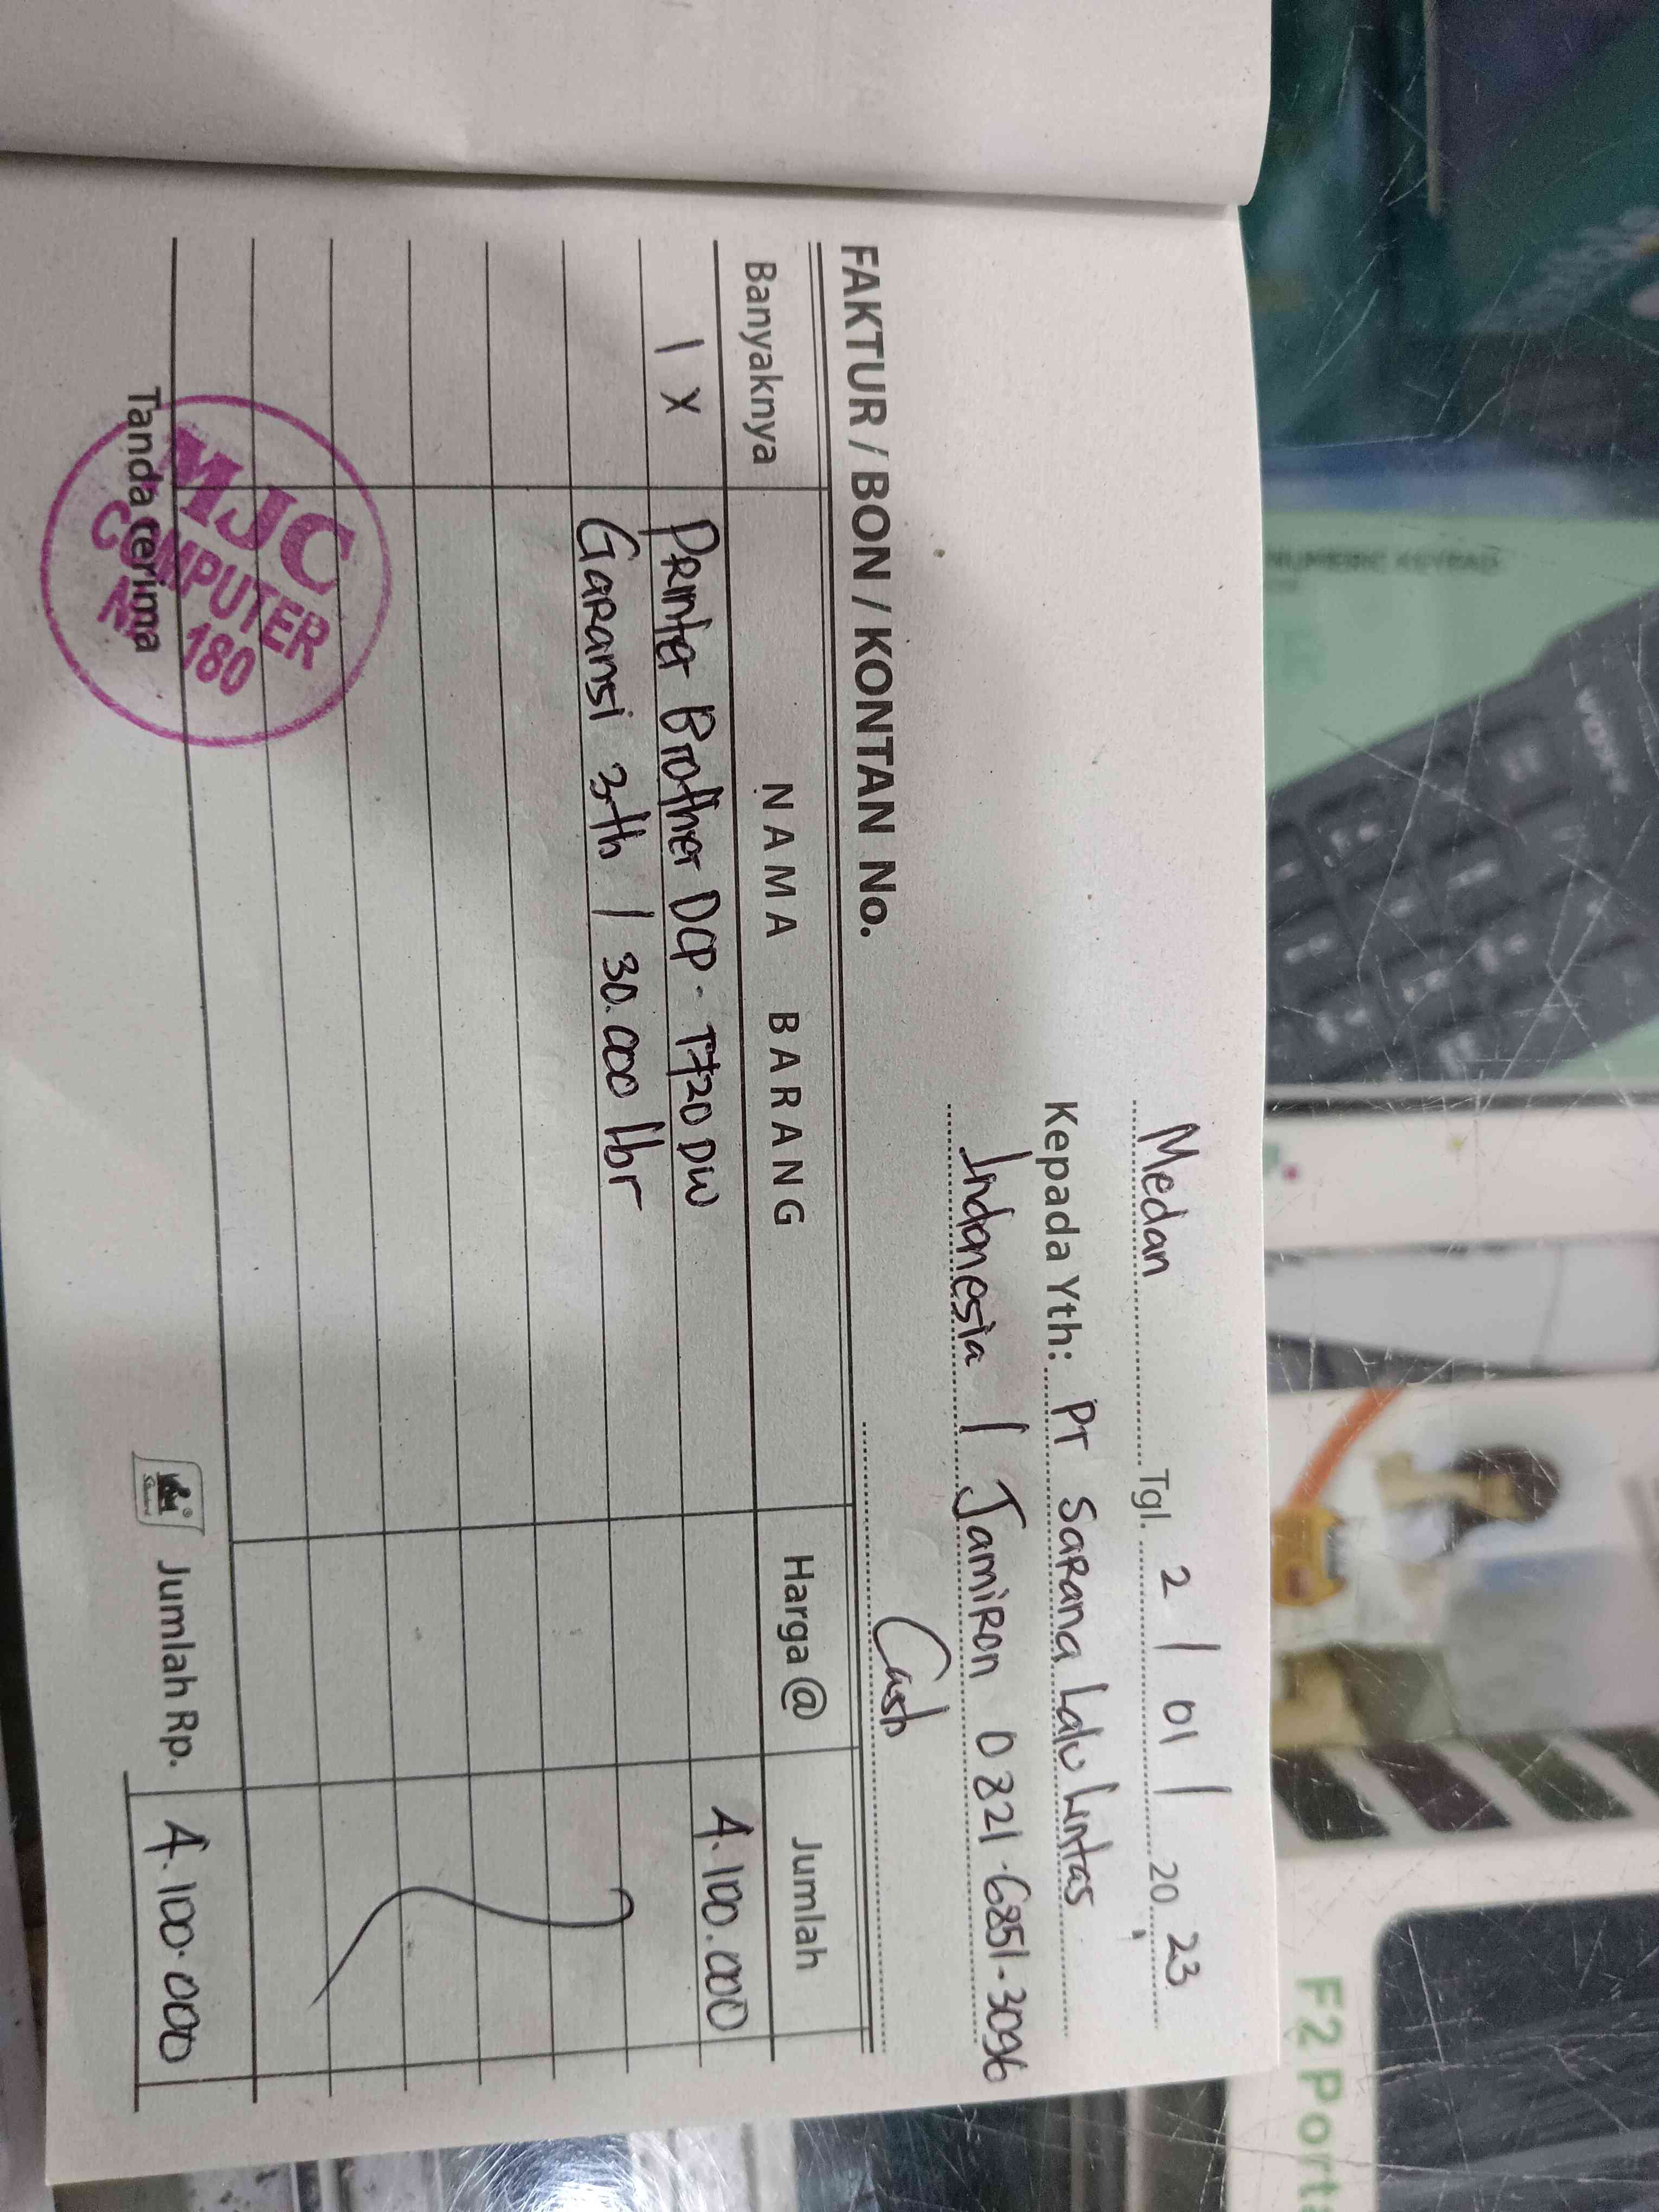 Medan Tgl. 2 / 01 / 20 23
Kepada Yth: PT Sarana Lalu Lintas
Indonesia / Jamiron 0821-6851-3096
Cash
FAKTUR / BON / KONTAN No.
Banyaknya NAMA BARANG Harga @ Jumlah
1 x Printer Brother DCP-T720DW 4.100.000
Garansi 3th / 30.000 lbr
Tanda terima
Jumlah Rp. 4.100.000
MJC
COMPUTER
180
NUMERIC KEYPAD
F2 Port